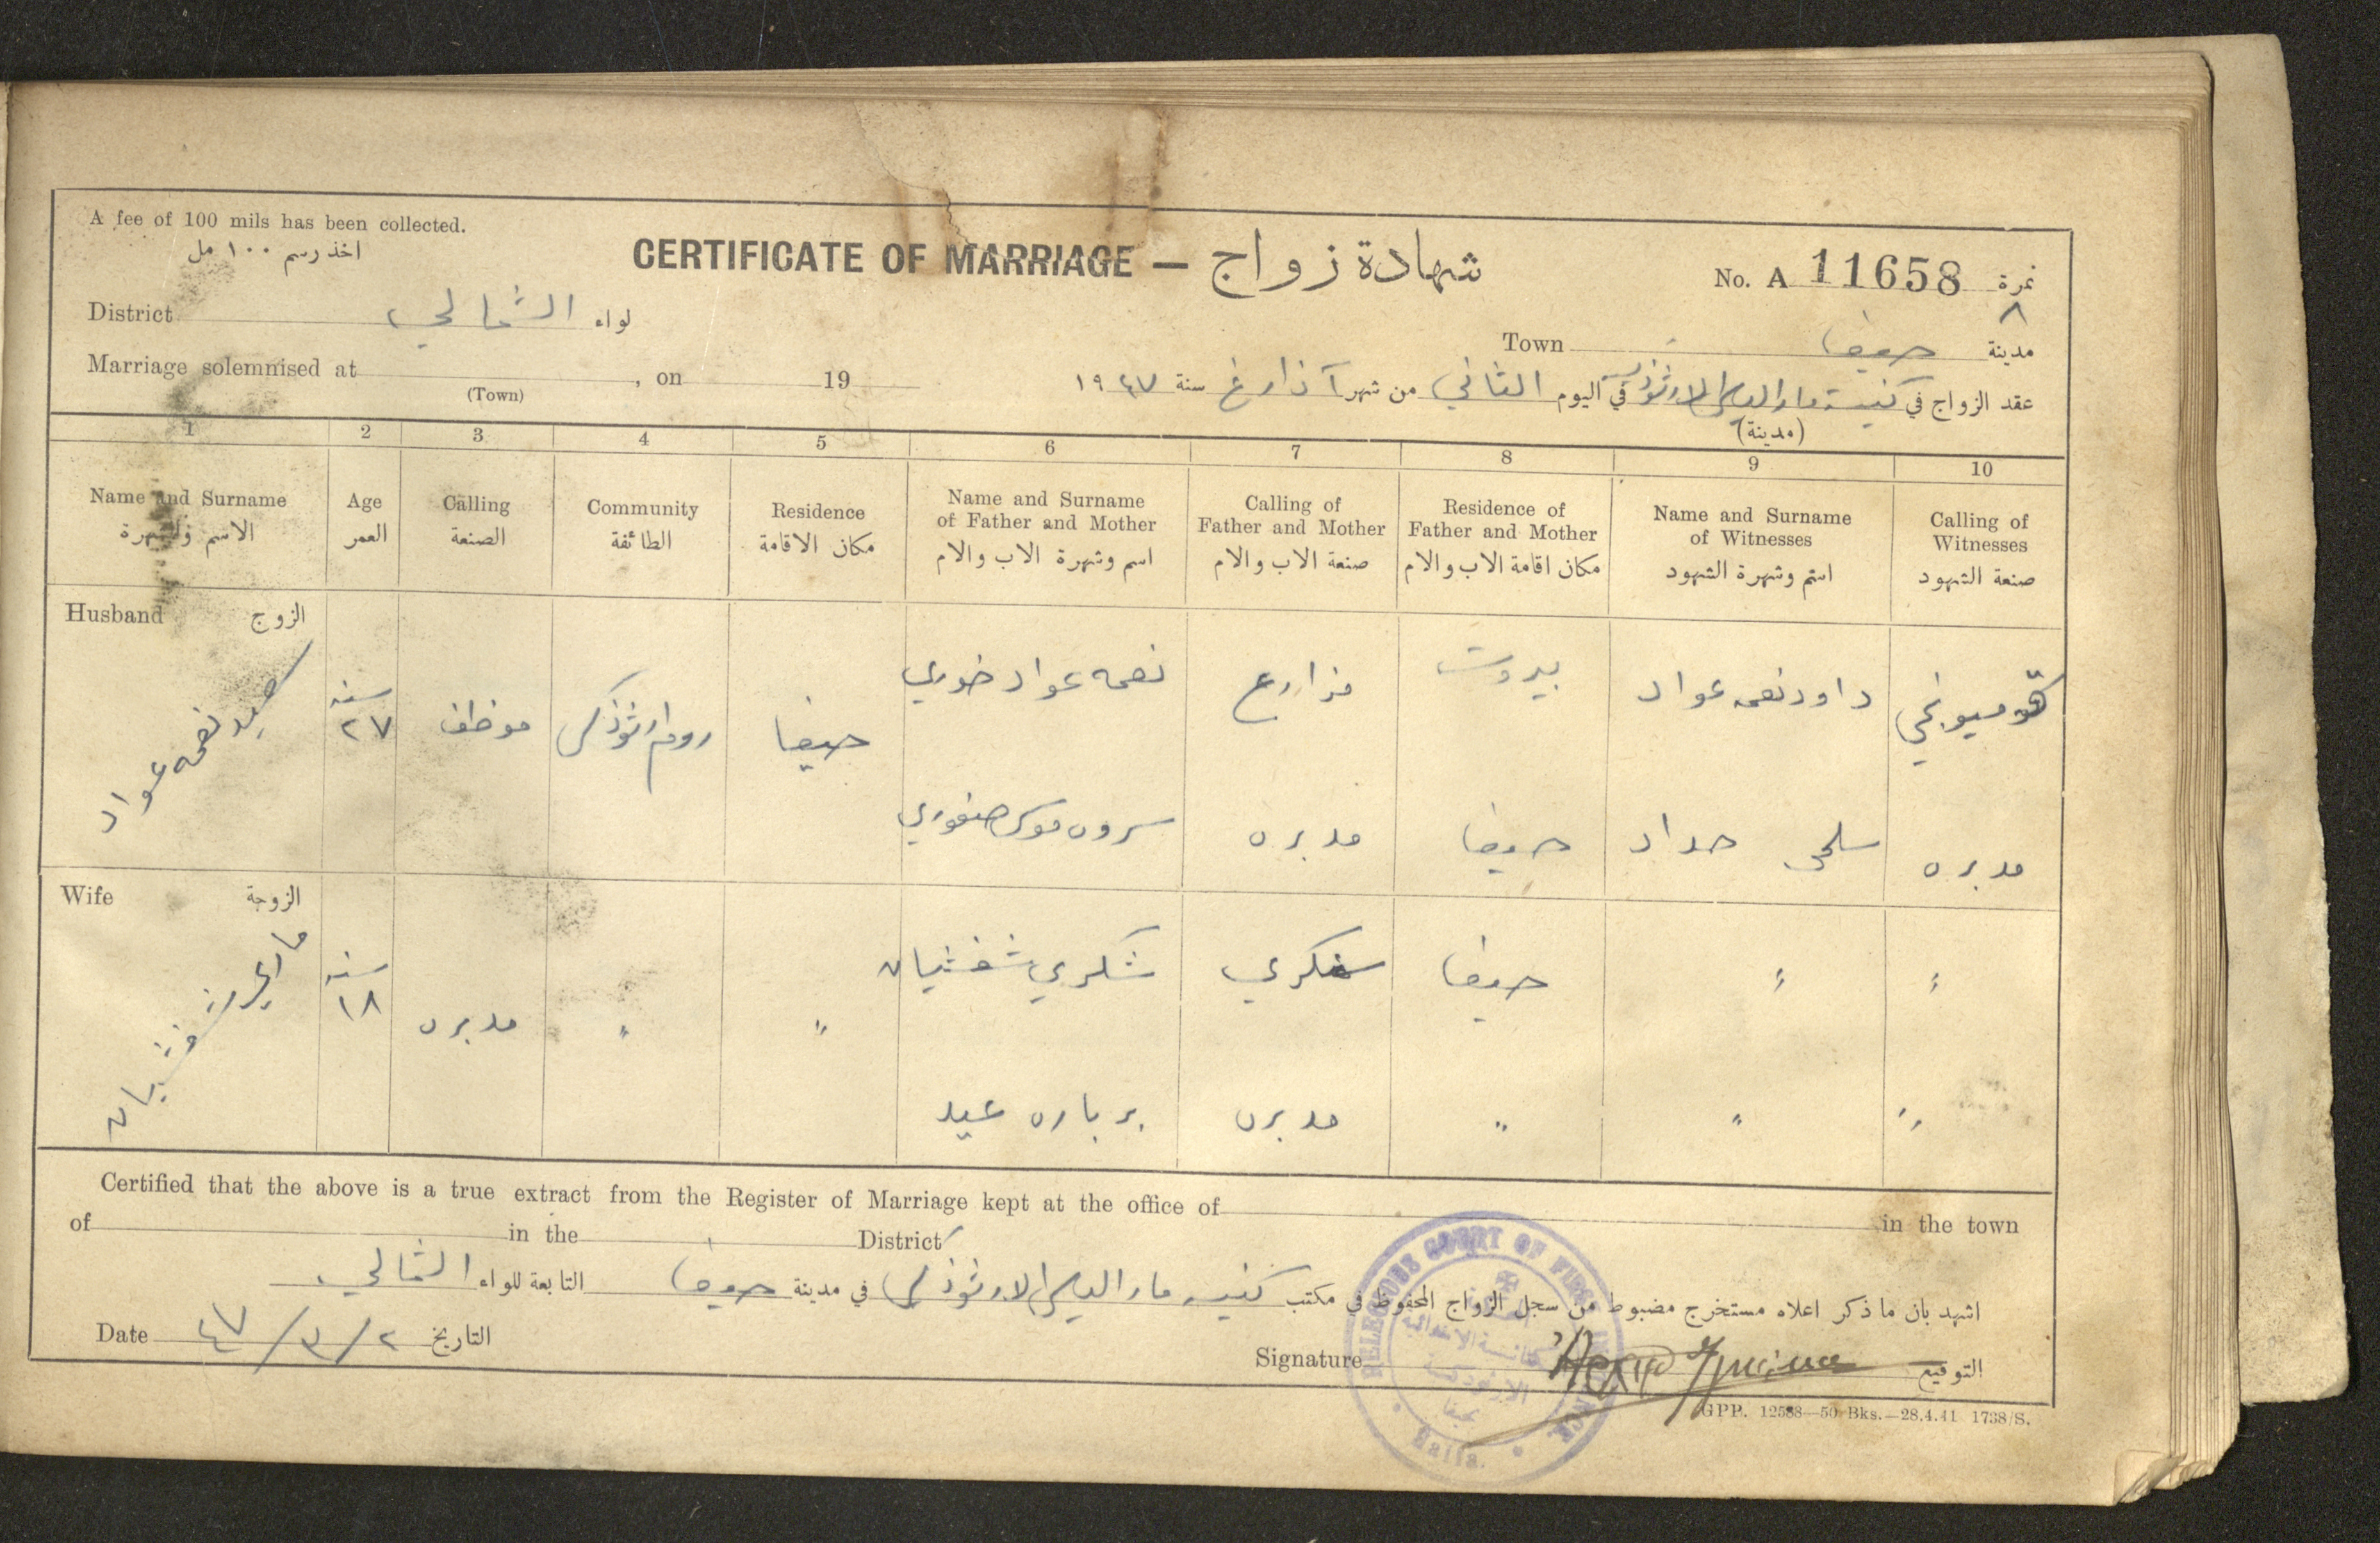 A fee of 100 mils has been collected.
اخذ رسم ١٠٠ مل
CERTIFICATE OF MARRIAGE — شهادة زواج
No. A 11658 نمرة
٨
District الشمالي لواء
Town حيفا مدينة
Marriage solemnised at , on 19
(Town)
عقد الزواج في كنيسة مار الياس الارثوذكس في اليوم الثاني من شهر آذار غ سنة ١٩٤٧
(مدينة)
1 2 3 4 5 6 7 8 9 10
Name and Surname
الاسم والشهرة
Age
العمر
Calling
الصنعة
Community
الطائفة
Residence
مكان الاقامة
Name and Surname
of Father and Mother
اسم وشهرة الاب والام
Calling of
Father and Mother
صنعة الاب والام
Residence of
Father and Mother
مكان اقامة الاب والام
Name and Surname
of Witnesses
اسم وشهرة الشهود
Calling of
Witnesses
صنعة الشهود
Husband الزوج
نعمه عواد
سنه
٢٧
موظف
روم ارثوذكس
حيفا
نعمه عواد خوري
مزارع
بيروت
داود نعمه عواد
قوميونجي
صفوري
مدبره
حيفا
سلمى حداد
مدبره
Wife الزوجة
سنه
١٨
مدبره
"
"
شكري شفشيان
سكري
حيفا
"
"
برباره عيد
مدبره
"
"
"
Certified that the above is a true extract from the Register of Marriage kept at the office of in the town
of in the District
اشهد بان ما ذكر اعلاه مستخرج مضبوط من سجل الزواج المحفوظ في مكتب كنيسة مار الياس الارثوذكس في مدينة حيفا التابعة للواء الشمالي
Date ٢/٣/٤٧ التاريخ
Signature التوقيع
RELEGIOUS COURT OF FIRST INSTANCE
الارثوذكسية
بحيفا
Haifa.
GPP. 12588—50 Bks.—28.4.41 1738/S.